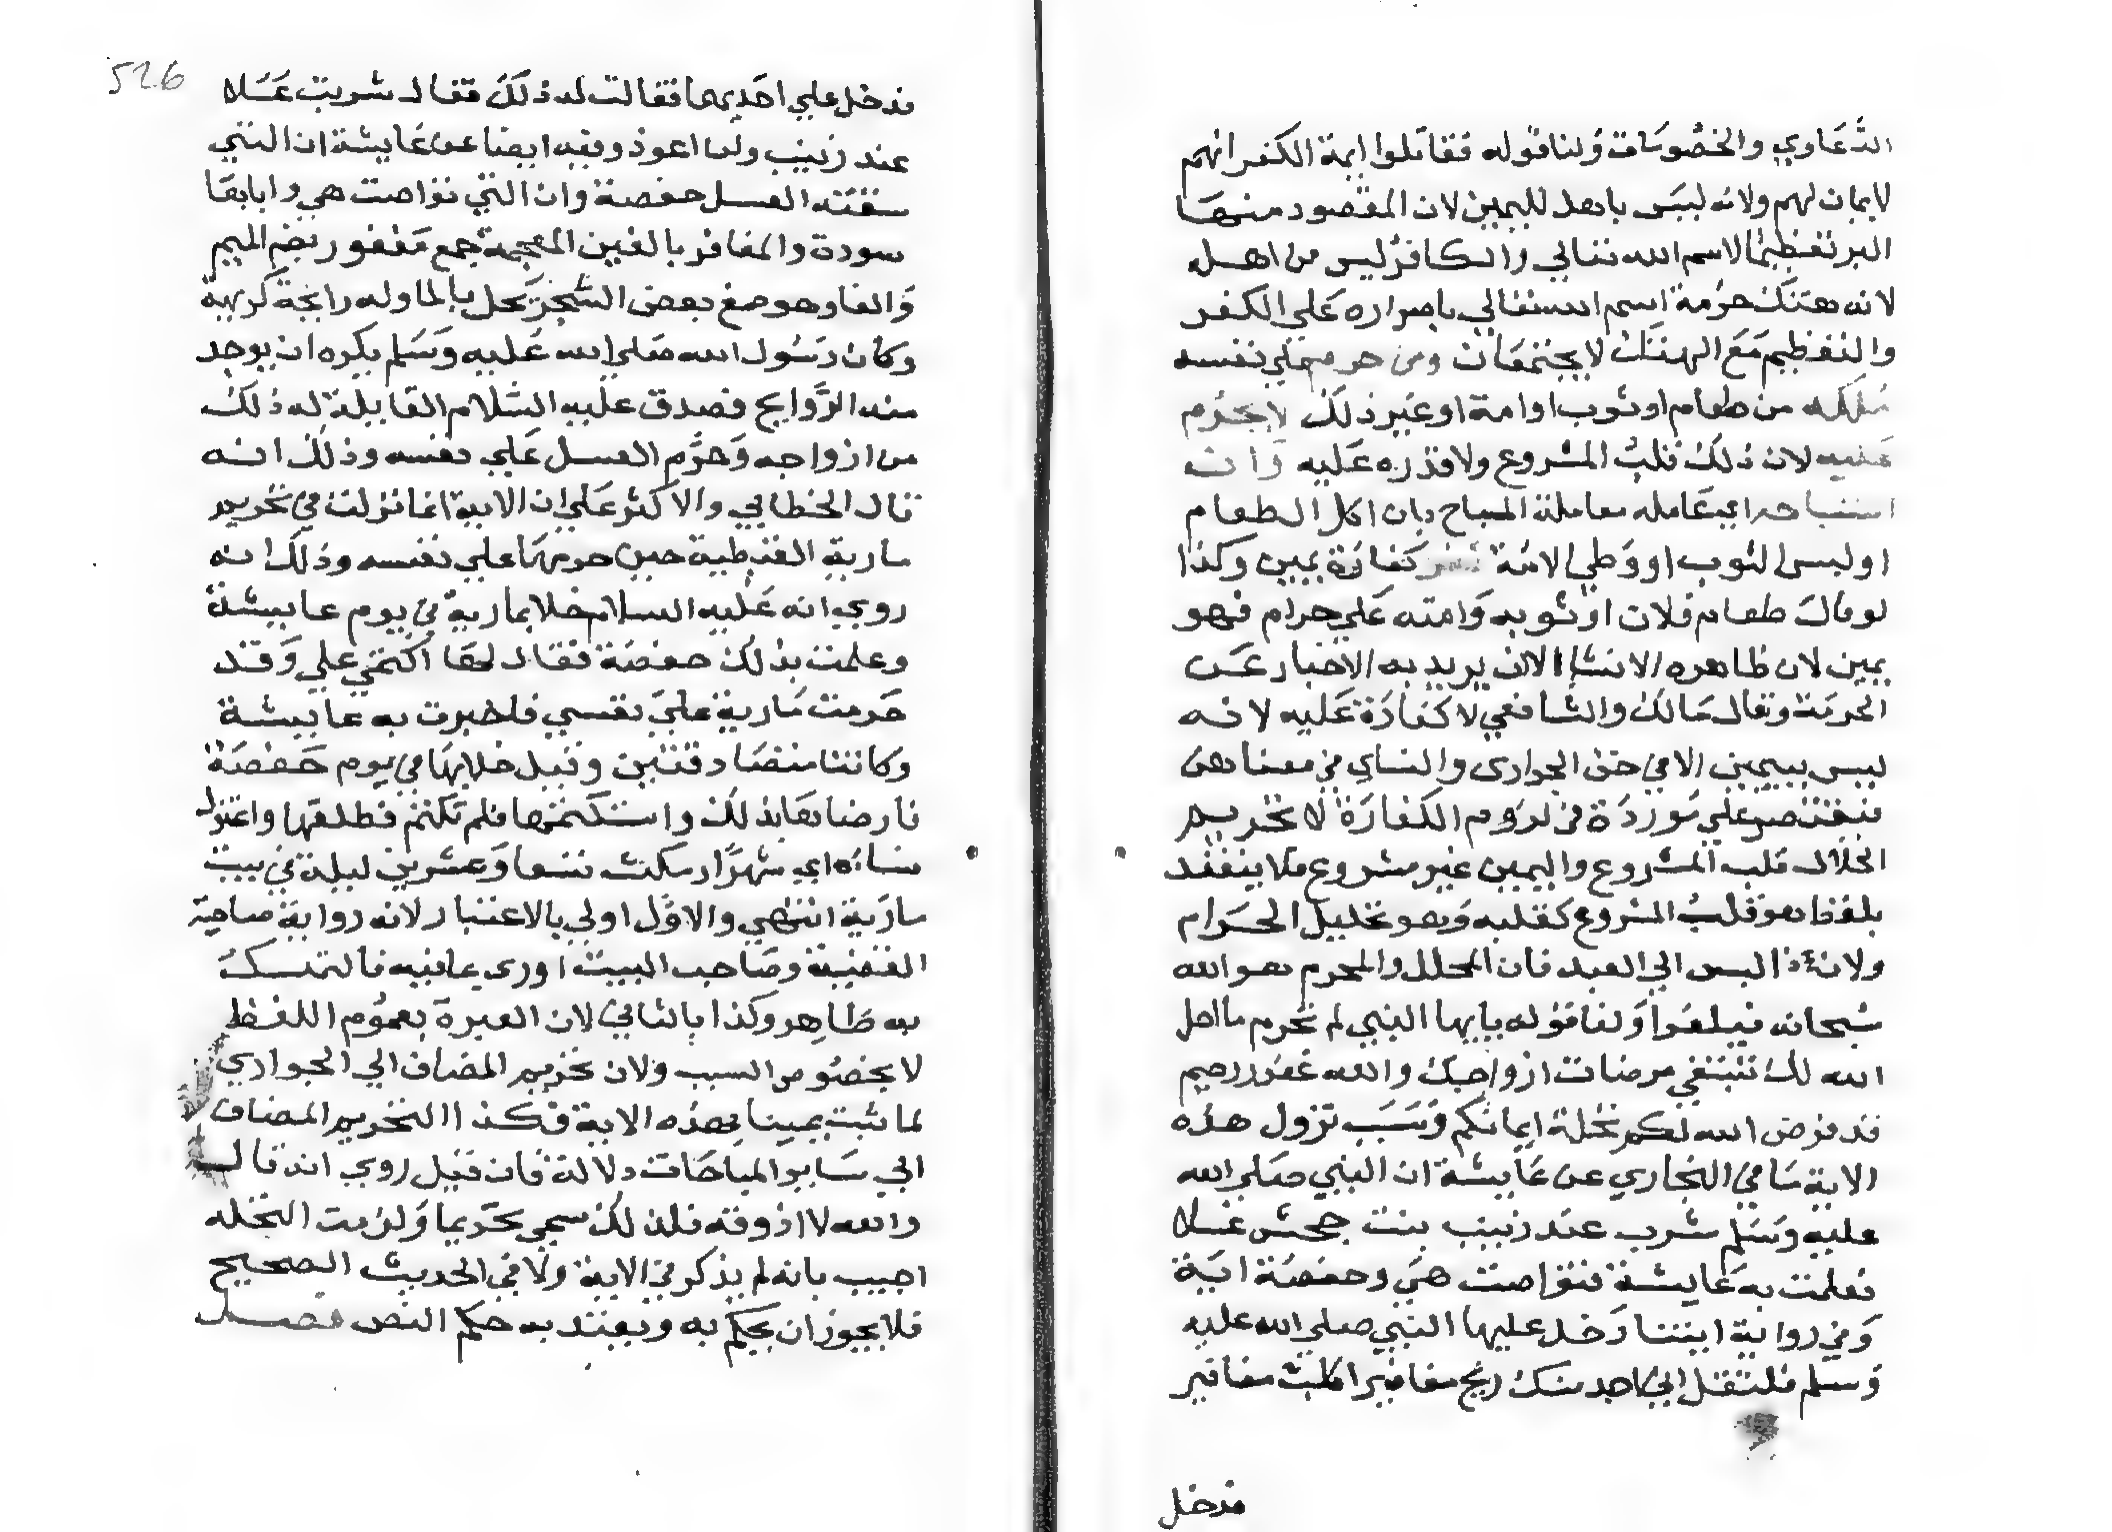 الدَّعَاوي والخصُومَات وَلنا قوله فقاتلوا ايمة الكفر انهم
لا يمان لهم ولانه ليسَ باهل لليمين لان المقصود منها
البر تعظيمًا لاسم الله تعالي والكافر ليس من اهله
لانه هتك حرمة اسم الله تعالي باصراره عَلي الكفر
والتعظيم مَعَ الهتك لا يجتمعَان ومن حرم علي نفسه
مُلكه من طعام او ثوب او امة او غير ذلك لا يحرُم
عَليه لان ذلك قلب المشروع ولا قدره عَليه وَان
استباحه اي عَامله معاملة المباح بان اكل الطعام
او لبس الثوب او وَطي الامَة كفارَة يمين وكذا
لو قالَ طعام فلان او ثوبه وَامته عَلي حرام فهو
يمين لان ظاهره الانشا الا ان يريد به الاخبار عَن
الحرمَة وقال مَالك والشافعي لا كفارَة عَليه لانه
ليس بيمين الا في حق الجواري والنساي في معناهن
فيقتصر علي مَوردَة في لزوم الكفارَة لا تحريم
الحلال قلب المشروع واليمين غير مشروع فلا ينعقد
بلفظ هو قلب المشروع كقلبه وَهو تحليل الحرَام
ولانه ذا ليس الي العبد فان المحلل والمحرم هو الله
سُبحانه فيلغوا وَلنا قوله يايها النبي لم تحرم ما احل
الله لك تبتغي مرضات ازواجك والله غفور رحيم
قد فرض الله لكم تحلة ايمانكم وَسَبَب نزول هذه
الاية مَا في البخاري عن عَايشة ان النبي صَلي الله
عليه وَسَلم شرب عند زينب بنت جحش عَسلا
فعلمت به عَايشة فتواصت هيَ وحفصَة ايَة
وَفي رواية ايتنا دَخل عليها النبي صلي الله عليه
وَسلم فلتقل اني اجد منك ريح مغافير اكلت مغافير
فدخل
526
فدخل علي احَديهما فقالت له ذلكَ فقال شربت عَسَلا
عند زينب ولن اعود وفيه ايضا عن عَايشة ان التي
سقته العسل حفصة وان التي تواصت هي وابابقا
سودة والمغافر بالغين المعجمة جمع مَغفور بضم الميم
وَالفا وهو صمغ بعض الشجر يحل بالماوله رايحة كريهة
وكان رَسُول الله صَلي الله عَليه وَسَلم يكره ان يوجد
منه الرَّوايح فصدق عليه السَّلام القايلة له ذلك
من ازواجه وَحرَّم العسل عَلي نفسه وذلك انه
قال الخطابي والاكثر عَلي ان الاية انما نزلت في تحريم
مارية القبطية حين حرمهَا علي نفسه وذلكَ انه
روي انه عَليه السلام خلا بمارية في يوم عايشة
وعلمت بذلك حفصَة فقال لهَا اكتمي علي وَقد
حَرمت مَارية علَيّ نفسي فاخبرت به عايشة
وَكانتا متصَادقتين وقيل خلا بهَا في يوم حَفصَة
فارضاهَا بذلك واستكتمها فلم تكتم فطلقها واعتزل
نساءه اي شهرًا ومكث تسعا وَعشرين ليلة في بيت
مارَية انتهي والاوَّل اولي بالاعتبار لانه رواية صاحبة
القضية وصَاحب البيت ادري بما فيه فالتمسك
به ظَاهِر وكذا بالثاني لان العبرة بعمُوم اللفظ
لا بخصُوص السبب وَلان تحريم المضاف الي الجواري
لما ثبت يمينا بهذه الاية فكذا التحريم المضاف
الي سَاير المباحَات دلالة فان قيل روي انه قال
والله لا اذوقه فلذلك سمي تحَريما وَلزمت التحله
اجيب بانه لم يذكر في الاية ولا في الحديث الصحيح
فلا يجوز ان يحكم به ويقيد به حكم النص فصل